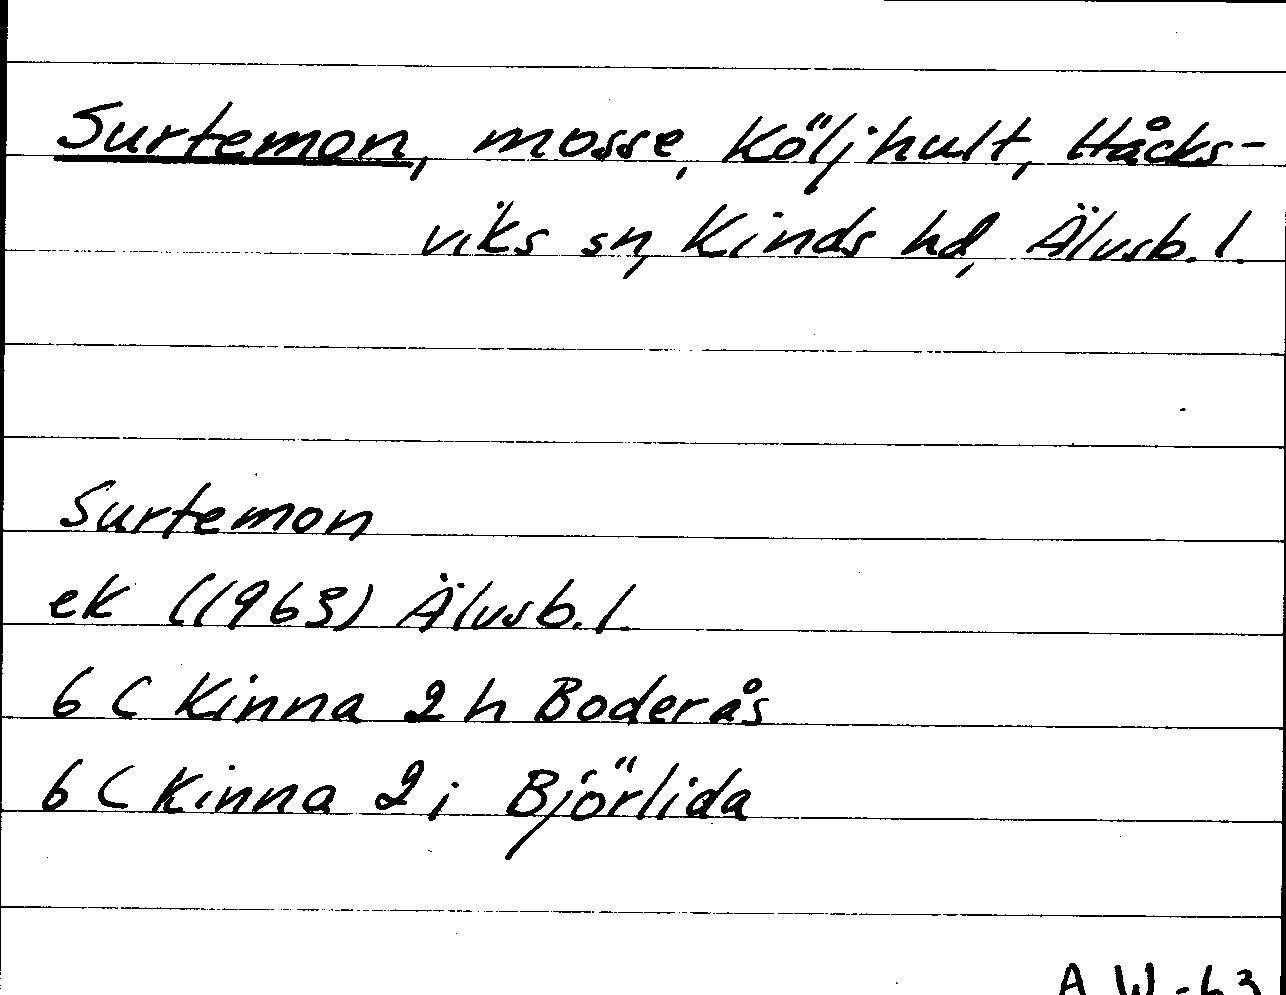 Surtemon, mosse, Köljhult, Håcks-
viks sn, Kinds hd, Älvsb. l.
Surtemon
ek (1963) Älvsb. l.
6 C Kinna 2 h Boderås
6 C Kinna 2 i Björlida
A W -63